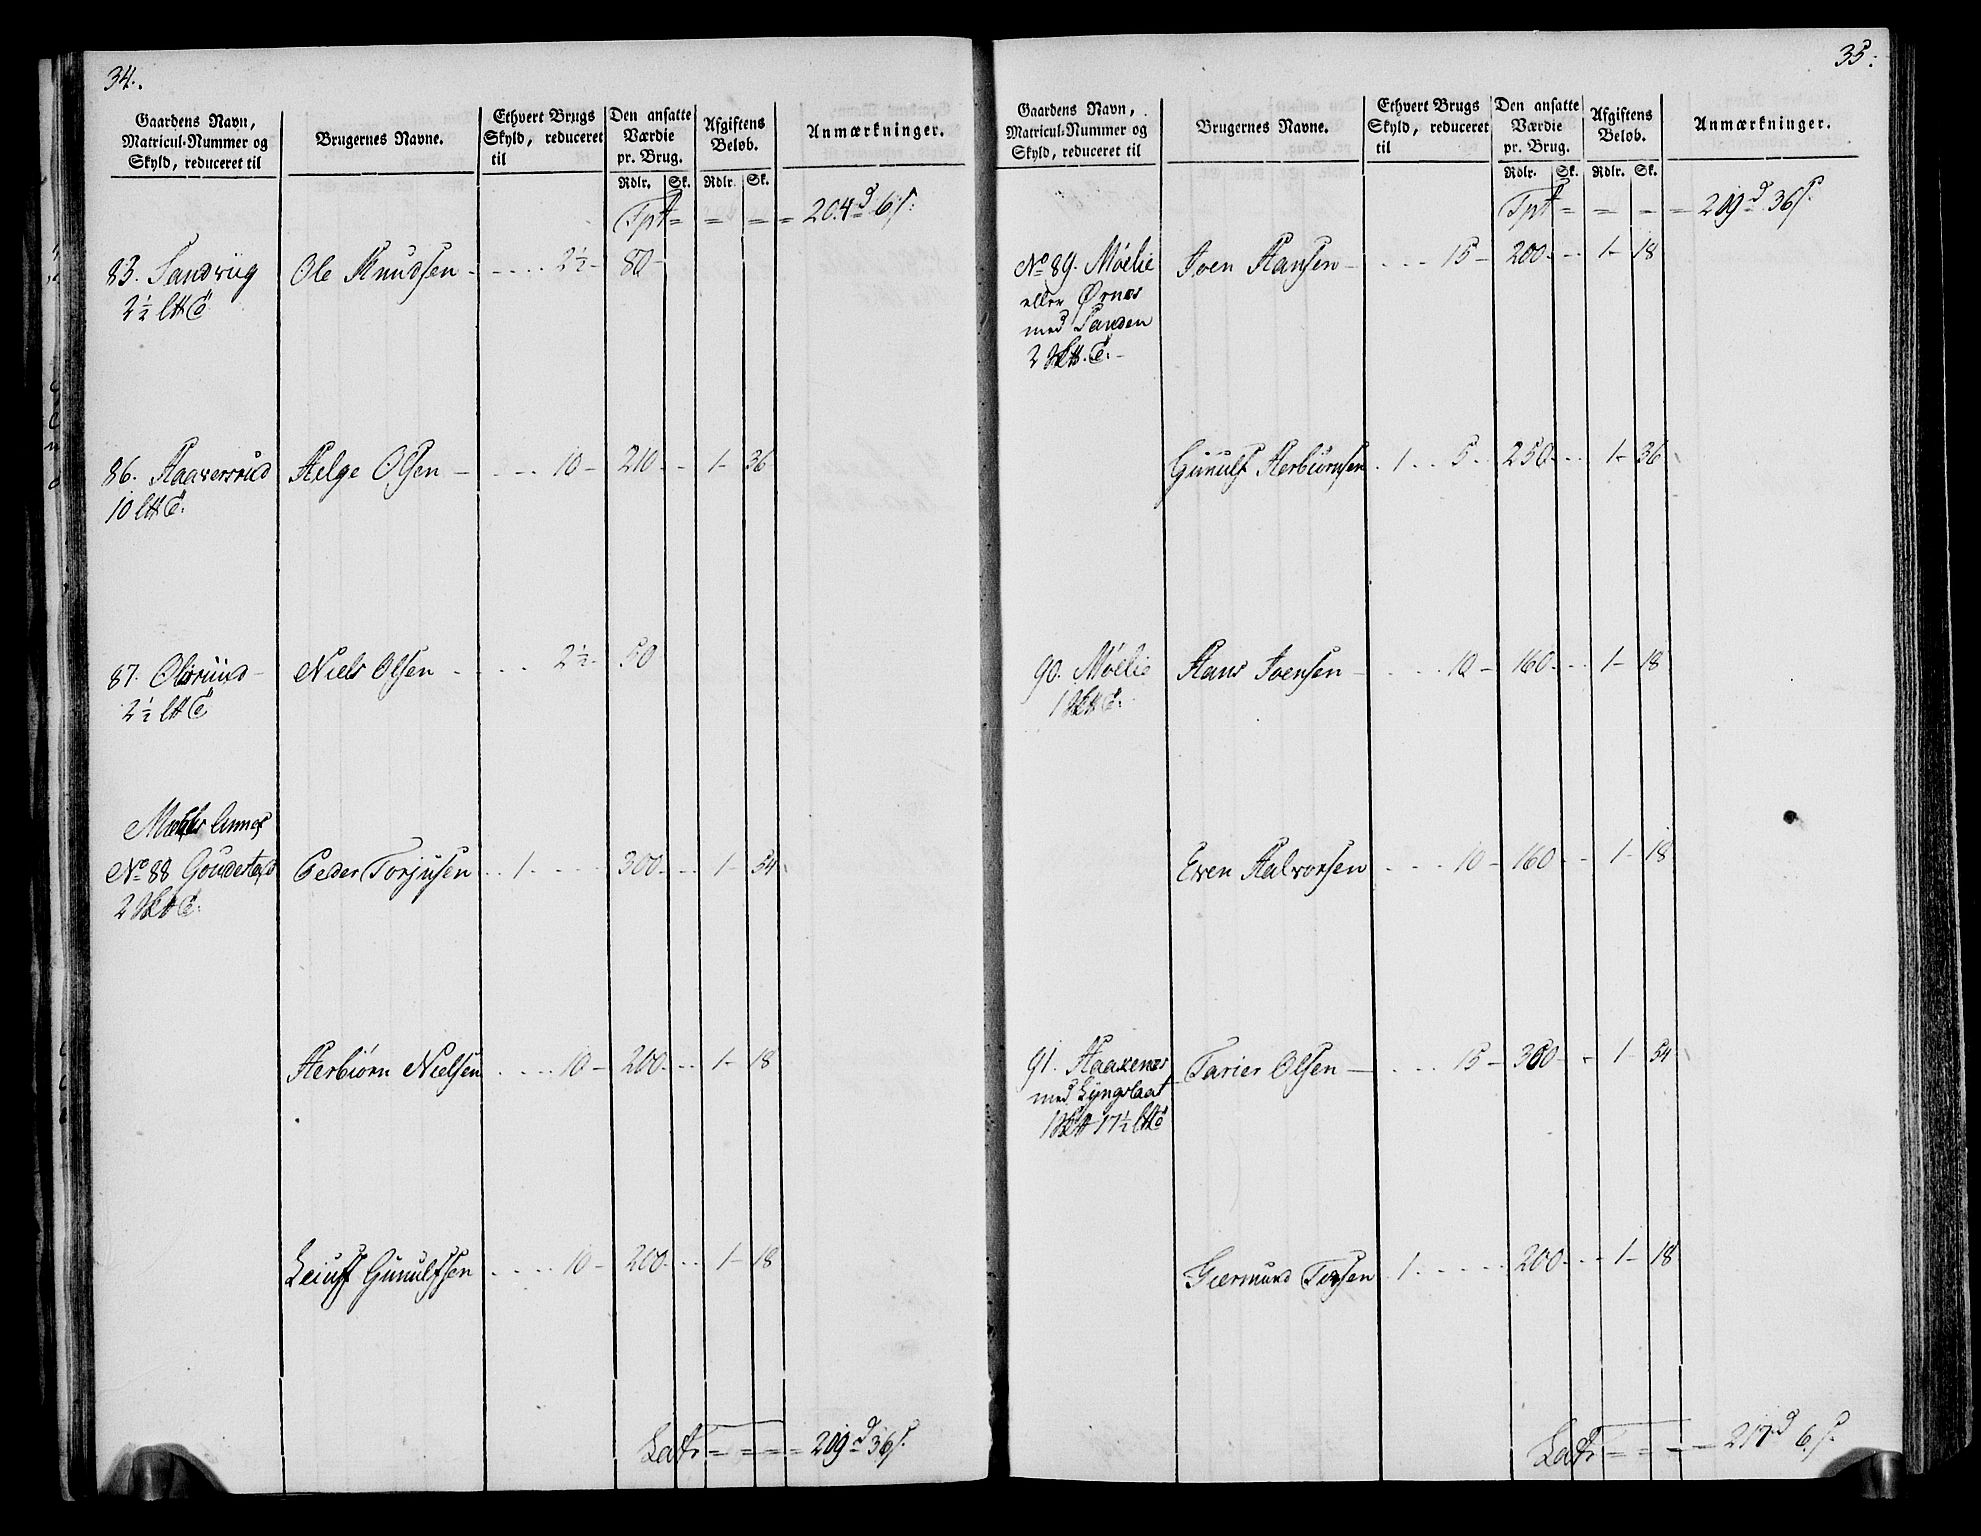 34.
Gaardens Navn, Matricul-Nummer og Skyld, reduceret til
Brugernes Navne.
Ethvert Brugs Skyld, reduceret til
Den ansatte Værdie pr. Brug.
Afgiftens Beløb.
Anmærkninger.
Rdlr. Sk. Rdlr. Sk.
Tpt = = = = 204 d 6 s:
83. Sandviig Ole Knudsen - - - - - 2½ - 80 -
2½ l℔ T
86. Haaversrud Helge Olsen - - - - 10 - 210 - - - 1 - 36
10 l℔ T.
87. Olsrüüd - Niels Olsen - - - - 2½ - 50
2½ l℔ T
Annex
No 88 Goudestad Peder Torjusen - - 1 - - - - - 300 - - - 1 - 54
2 Sk℔ T.
Herbiørn Nielsen - - - - 10 - 200 - - - 1 - 18
Leiuff Gunulfsen - - - - 10 - 200 - - - 1 - 18
Latr = = = = 209 d 36 s.
35.
Gaardens Navn, Matricul-Nummer og Skyld, reduceret til
Brugernes Navne.
Ethvert Brugs Skyld, reduceret til
Den ansatte Værdie pr. Brug.
Afgiftens Beløb.
Anmærkninger.
Rdlr. Sk. Rdlr. Sk.
Tpt = = = = 209 d 36 s.
No 89. Møelie Joen Hansen - - - - 15 - 200 - - - 1 - 18
eller Ørnes
med Sanden
2 Sk℔. T. -
Gunulf Herbiørnsen . 1 . . 5 - 250 - - - 1 - 36
90. Møelie Hans Joensen - - - - 10 - 160 - - - 1 - 18
1 Sk℔ T.
Even Halvorsen - - - - 10 - 160 - - 1 - 18
91. Haaxenes Tarier Olsen - - - - 15 - 350 - - 1 - 54
med Lyngslaat
1 Sk℔ 17½ l℔ T
Giermund Torsen . 1 . - - - - 200 - - - 1 - 18
Latr = = = = 217 d 6 s.